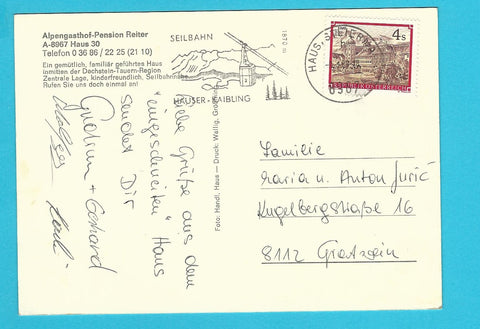 Alpengasthof-Pension Reiter
A-8967 Haus 30
Telefon 0 36 86 / 22 25 (21 10)
Ein gemütlich, familiär geführtes Haus
inmitten der Dachstein-Tauern-Region
Zentrale Lage, kinderfreundlich, Seilbahnnähe
Rufen Sie uns doch einmal an!
SEILBAHN
1870 m
HAUSER-KAIBLING
HAUS,
4 s
REPUBLIK ÖSTERREICH
Liebe Grüße aus dem
"eingschneiten" Haus
sendet Dir
Gudrun + Gerhard
Foto: Handl, Haus — Druck: Wallig,
Familie
Maria u. Anton Jurić
Kugelbergstraße 16
8112 Gratwein